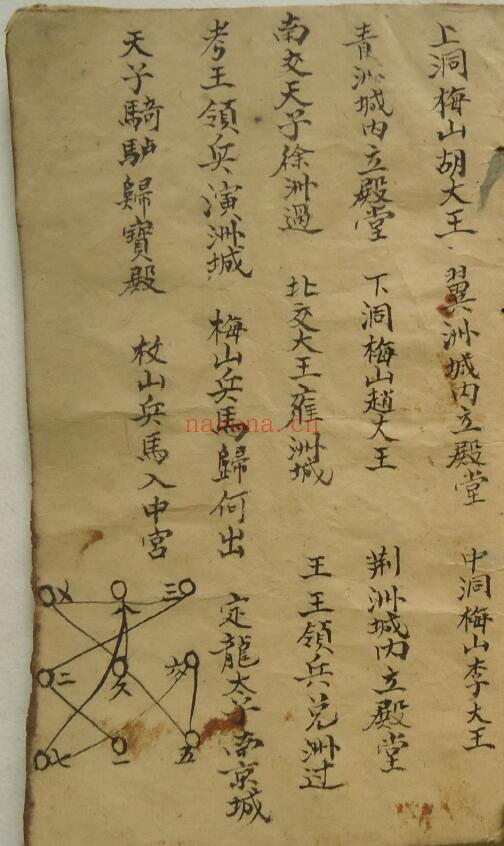 上洞梅山胡大王 翼洲城内立殿堂 中洞梅山李大王
青洲城内立殿堂 下洞梅山趙大王 荆洲城内立殿堂
南交天子徐洲過 北交大王雍洲城 王王領兵兑洲过
考王領兵演洲城 梅山兵馬歸何出 定龍太子南京城
天子騎馿歸寶殿 枚山兵馬入中宮
乂 八 三
二 久 六
七 一 五
nakona.cn